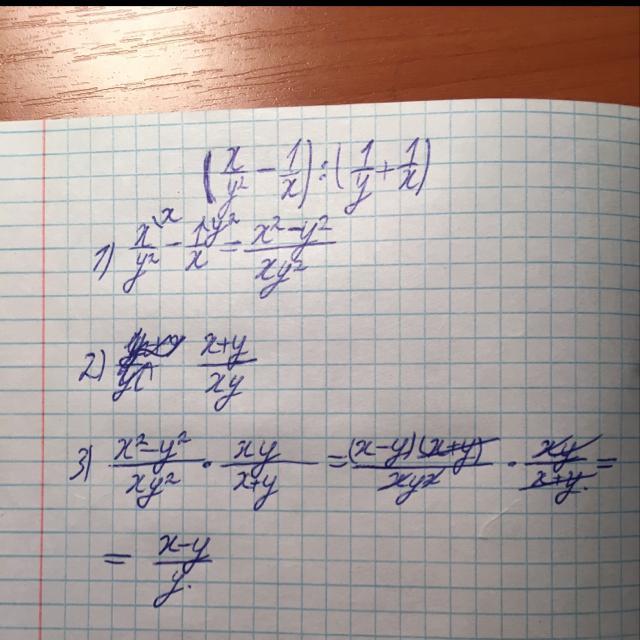 (x/y² - 1/x) : (1/y + 1/x)
1) x\x/y² - 1\y²/x = x²-y²/xy²
2) x+y/xy
3) x²-y²/xy² · xy/x+y = (x-y)(x+y)/xyx · xy/x+y =
= x-y/y.